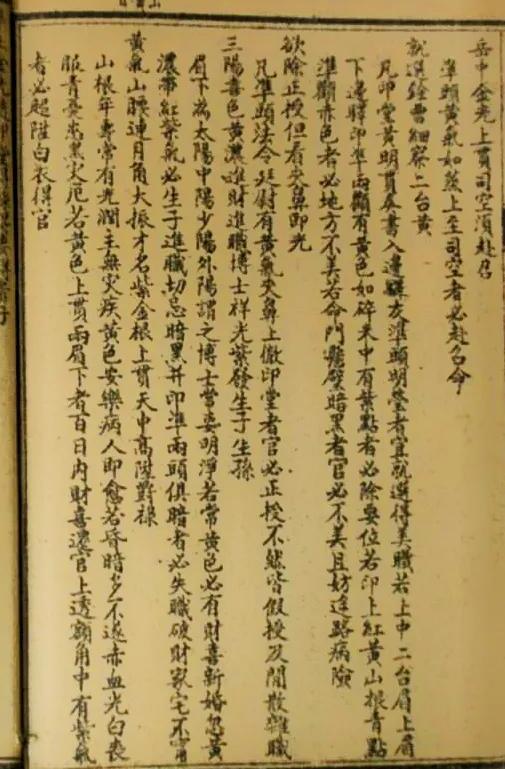 岳中金光上貫司空湏赴召
準頭黄氣如蒸上至司空者必赴召命
就選経曹細察二台黄
凡印堂黄明貫奏書入邊驛及準頭明瑩者宜就選得美職若上中二台眉上眉
下邊驛印準兩顴有黄色如碎米中有紫點者必除要位若印上紅黄山根青點
準顴赤色者必地方不美若命門懸壁暗黑者官必不美且妨途路病險
欲除正授但看夾鼻即光
凡準頭法令廷尉有黄氣夾鼻上徹印堂者官必正授不然皆假授及閒散雜職
三陽喜色黄濃進財進職博士祥光紫發生子生孫
眉下為太陽中陽少陽外陽謂之博士常要明淨若常黄色必有財喜新婚忽黄
濃帶紅紫氣必生子進職切忌暗黑并印準兩頭俱暗者必失職破財家宅不甯
黄氣山腰連月角大振才名紫金根上貫天中高陞爵禄
山根年壽常有光潤主無灾疾黄色安樂病人即愈若昏暗多不遂赤血光白喪
服青憂恙黑灾厄若黄色上貫兩眉下者百日内財喜遷官上透額角中有紫氣
者必超陞白衣得官